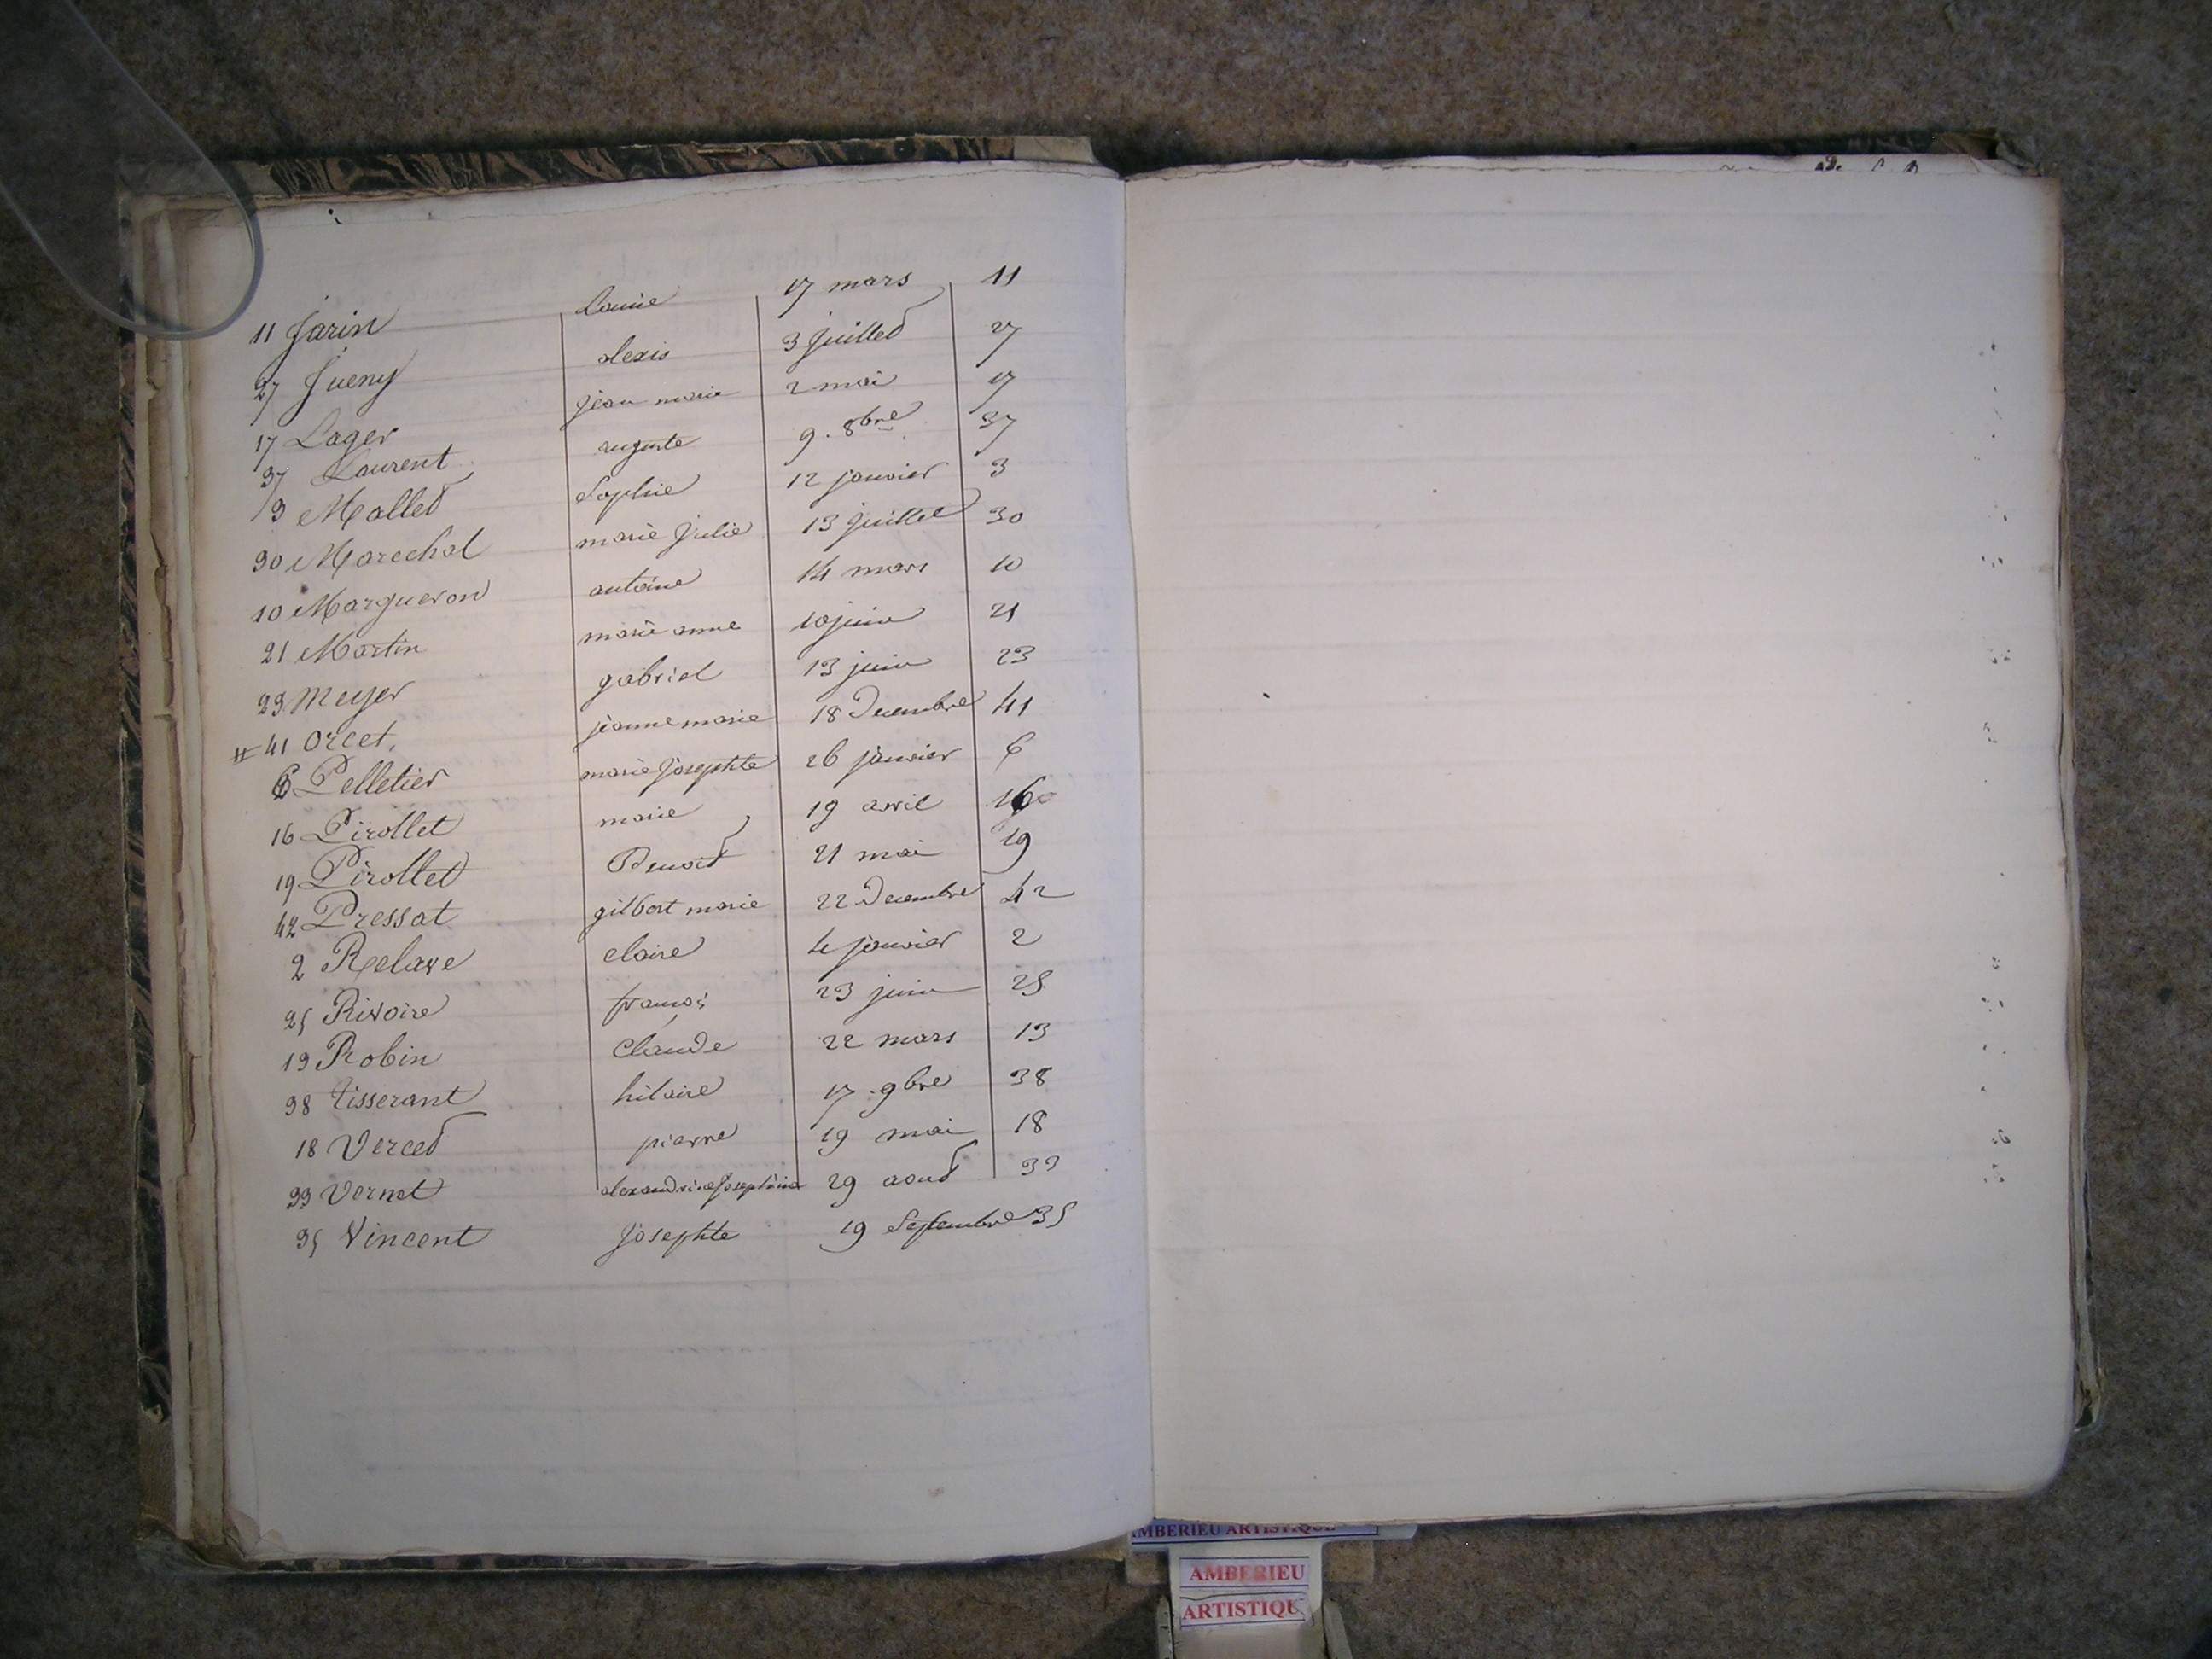 11 Jarin louise 17 mars 11
27 Jueny alexis 3 juillet 27
17 Lager jean marie 2 mai 17
37 Laurent auguste 9. 8bre 37
3 Mallet Sophie 12 janvier 3
30 Marechal marie julie 13 juillet 30
10 Margueron antoine 14 mars 10
21 Martin marie anne 10 juin 21
23 Meyer gabriel 13 juin 23
# 41 Orcet, jeanne marie 18 Decembre 41
6 Pelletier marie josephte 26 janvier 6
16 Pirollet marie 19 avril 16
19 Pirollet Benoit 21 mai 19
42 Pressat gilbert marie 22 Decembre 42
2 Relave claire 4 janvier 2
25 Rivoire françois 23 juin 25
13 Robin Claude 22 mars 13
38 Tisserant hilaire 17. 9bre 38
18 Vercet pierre 19 mai 18
33 Vernet alexandrine Josephine 29 aout 33
35 Vincent Josephte 19 Septembre 35
AMBERIEU ARTISTIQUE
AMBERIEU
ARTISTIQU